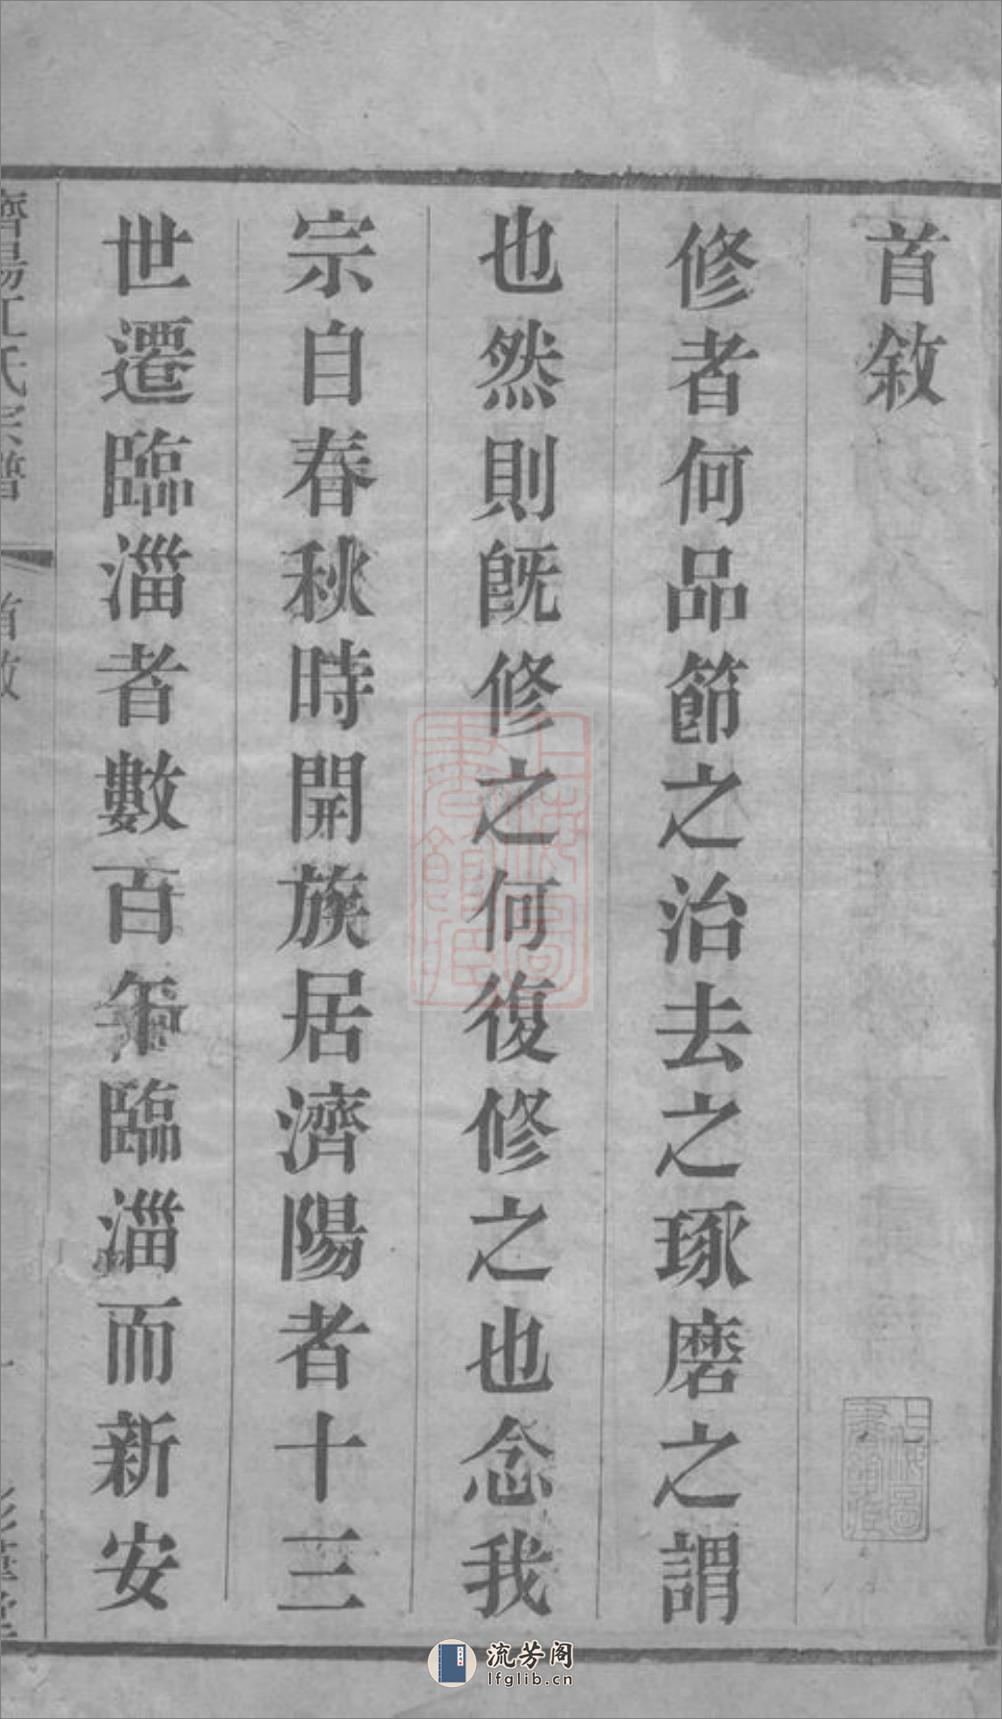 首敘
修者何品節之治去之琢磨之謂
也然則旣修之何復修之也念我
宗自春秋時開族居濟陽者十三
世遷臨淄者數百年臨淄而新安
濟陽江氏宗譜
首敘
一
上海圖書館藏
上海圖書館藏
流芳阁
lfglib.cn